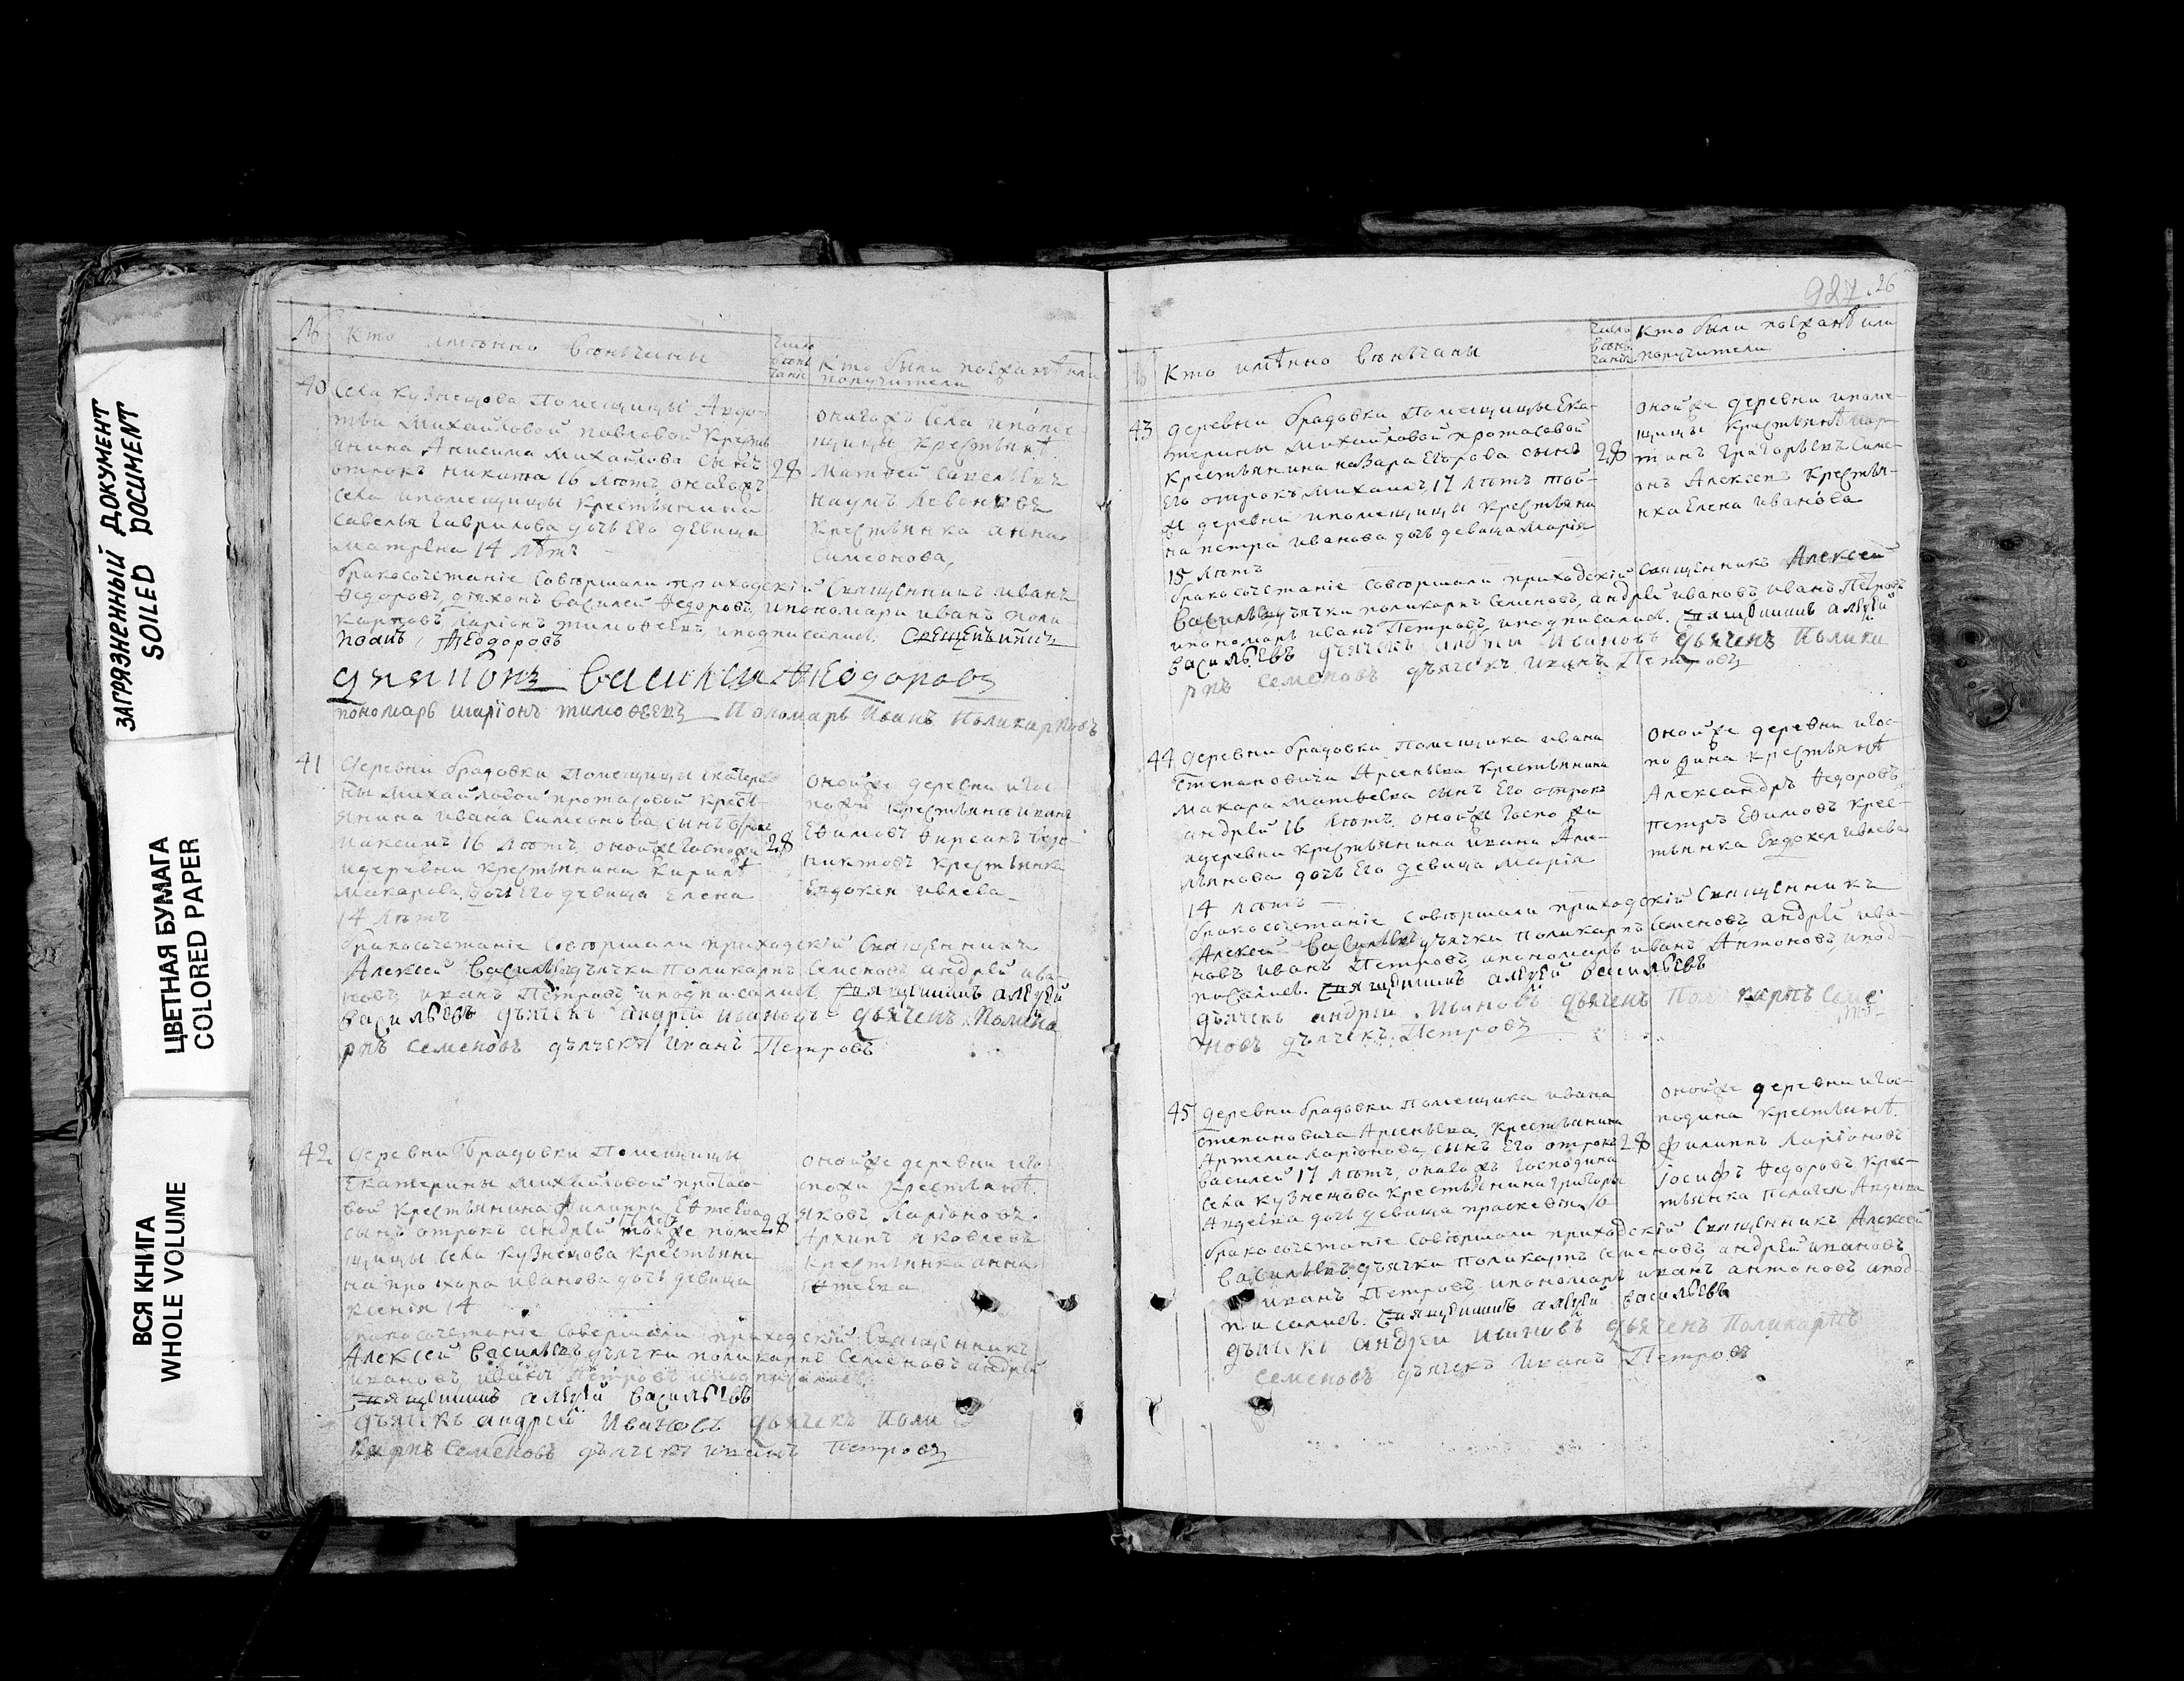 ЗАГРЯЗНЕННЫЙ ДОКУМЕНТ
SOILED DOCUMENT
ЦВЕТНАЯ БУМАГА
COLORED PAPER
ВСЯ КНИГА
WHOLE VOLUME
№
Кто имянно венчаны
число венч
Кто были поезжанѣ или
поручители
40
Села Кузнецова Помещицы Авдо-
тьи Михайловой Павловой Кресть
янина Анисима Михайлова сынъ
отрокъ Никита 16 лѣтъ онагожъ
села ипомещицы Крестьянина
Савелья Гаврилова дочь Его девица
Матрена 14 лѣтъ
28
онагожъ села ипоме-
щицы Крестьянѣ
Матвей Савельевъ
Наумъ
Крестьянка Анна
Симеонова,
бракосочетаніе Совершали приходскій Священникъ Иванъ
Ѳедоровъ, діяконъ Василей Ѳедоровъ, ипономари Иванъ Поли
карповъ Ларіонъ Тимоѳеевъ иподписались.
Иоанъ Ѳеодоровъ
дияконъ Василей Ѳеодоровъ
пономарь Иларіонъ Тимоѳеевъ Пономарь Иванъ Поликарповъ
41
Деревни брадовки Помещицы Екатери
ны Михайловой протасовой Кресть-
янина Ивана Симеонова сынъ
Максимъ 16 лѣтъ, онойже Госпожи
идеревни Крестьянина Кирилѣ
Макарова дочь Его девица Елена
14 лѣтъ
28
онойже деревни игос
пожи Крестьянѣ Иванъ
Ефимовъ Фирсанъ
Крестьянка
Евдокея Ивлева
бракосочетаніе Совершали приходскій Священникъ
Алексей Васильевъ дьячки Поликарпъ Семеновъ Андрей Ива-
новъ, Иванъ Петровъ иподписались. Священникъ Алеѯей
Васильевъ дьячекъ Андрей Ивановъ дьячекъ Полика
рпъ Семеновъ дьячекъ Иванъ Петровъ
42
Деревни Брадовки Помещицы
Екатерины Михайловой протасо-
вой Крестьянина Филиппа
сынъ отрокъ Андрей тойже поме
щицы Села Кузнецова Крестьяни
на Прохора Иванова дочь девица
Ксенія 14
28
онойже деревни иго
спожи Крестьянѣ.
Яковъ Ларіоновъ.
Архипъ Яковлевъ
Крестьянка Анна
бракосочетаніе Совершали приходскій Священникъ
Алексей Васильевъ дьячки Поликарпъ Семеновъ Андрей
Ивановъ, Иванъ Петровъ иподписались.
Священникъ Алеѯей Васильевъ
дьячекъ Андрей Ивановъ дьячекъ Поли
карпъ Семеновъ дьячекъ Иванъ Петровъ
927 26
Кто имѣнно венчаны
число венчанія
Кто были поезжанѣ или
поручители
43
деревни брадовки Помещицы Ека-
терины Михайловой протасовой
Крестьянина Назара Егорова сынъ
Его отрокъ Михаилъ, 17 лѣтъ той-
же деревни ипомещицы Крестьяни
на Петра Иванова дочь девица Марія
15 лѣтъ
28
онойже деревни ипоме-
щицы Крестьянѣ Мар-
тинъ Григорьевъ Симе-
онъ Алексеевъ Крестья-
нка Елена Иванова
бракосочетаніе совершали приходскій Священникъ Алексей
Васильевъ дьячки Поликарпъ Семеновъ, Андрей Ивановъ Иванъ Петровъ
ипономарь Иванъ Петровъ, иподписались. Священникъ Алеѯей
Васильевъ дьячекъ Андрей Ивановъ дьячекъ Полика
рпъ Семеновъ дьячекъ Иванъ Петровъ
44
Деревни брадовки Помещика Ивана
Степановича Арсеньева Крестьянина
Макара Матвеева сынъ Его отрокъ
Андрей 16 лѣтъ. онойже Госпожи
идеревни Крестьянина Ивана
дочь Его девица Марія
14 лѣтъ
онойже деревни игос-
подина Крестьянѣ
Александръ Ѳедоровъ
Петръ Ефимовъ Крес-
тьянка Евдокея Ивлева
бракосочетаніе Совершали приходскій Священникъ
Алексей Васильевъ дьячки Поликарпъ Семеновъ Андрей Ива-
новъ Иванъ Петровъ, ипономарь Иванъ Антоновъ, ипод-
писались. Священникъ Алеѯей Васильевъ
дьячекъ Андрей Ивановъ дьячекъ Поликарпъ Семе
новъ дьячекъ Петровъ
45
Деревни брадовки Помещика Ивана
Степановича Арсеньева, Крестьянина
Артема Ларіонова, сынъ Его отрокъ
Василей 17 лѣтъ, онагожъ Господина
села Кузнецова Крестьянина Григорья
Авдеева дочь девица Праскевія 16
28
онойже деревни игос-
подина Крестьянѣ.
Филиппъ Ларіоновъ
Іосифъ Ѳедоровъ Крес-
тьянка Пелагея Авдеева
бракосочетаніе Совершали приходскій Священникъ Алексей
Васильевъ дьячки Поликарпъ Семеновъ, Андрей Ивановъ
Иванъ Петровъ, ипономарь Иванъ Антоновъ ипод-
писались. Священникъ Алеѯей Васильевъ
дьячекъ Андрей Ивановъ дьячекъ Поликарпъ
Семеновъ дьячекъ Иванъ Петровъ